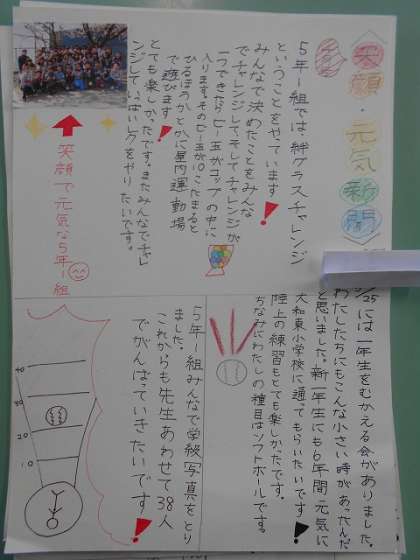 笑顔・元気新聞
5年一組では、絆グラスチャレンジ
ということをやっています!
みんなで決めたことをみんな
でチャレンジして、そしてチャレンジが
一つできたらビー玉がコップの中に
入ります。そのビー玉が10こたまると
ひるほうかとかに屋内運動場
で遊びます!
とても楽しかったです。またみんなでチャレ
ンジしていっぱいレクをやりたいです。
笑顔で元気な5年1組
4/25には一年生をむかえる会がありました。
わたしたちにもこんな小さい時があったんだ
と思いました。新一年生にも6年間元気に
大和東小学校に通ってもらいたいです!
陸上の練習もとても楽しかったです。
ちなみにわたしの種目はソフトボールです。
5年一組みんなで学級写真をとり
ました。
これからも先生あわせて38人
でがんばっていきたいです!
40
30
20
10